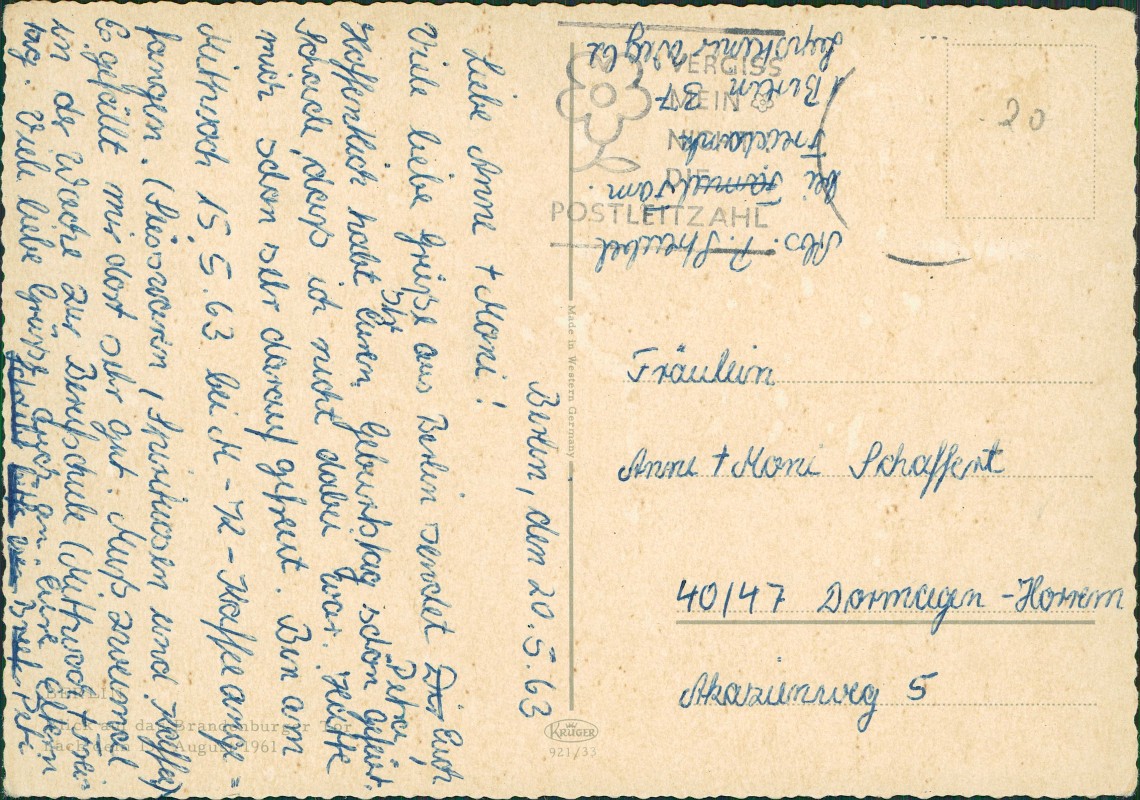 Berlin, den 20.5.63
Liebe Anne + Moni!
Viele liebe Grüße aus Berlin sendet Euch Peter,
Hoffentlich habt Ihr Euren Geburtstag schön gefeiert.
Schade, dass ich nicht dabei war. Hätte
mich schon sehr darauf gefreut. Bin am
Mittwoch 15.5.63 bei M-K-Kaffee ange=
fangen. (Süsswaren, Spirituosen und Kaffee)
Es gefällt mir dort sehr gut. Muß zweimal
in der Woche zur Berufschule (Mittwoch + Frei-
tag. Viele liebe Grüße auch an Eure Eltern
Abs. P. Streubel
bei
Berlin
VERGISS
MEIN
NICHT
DIE
POSTLEITZAHL
20
Fräulein
Anni + Moni Schaffert
40/47 Dormagen-Horrem
Akazienweg 5
Made in Western Germany
KRÜGER
921/33
BERLIN
Blick auf das Brandenburger Tor
nach dem 13. August 1961